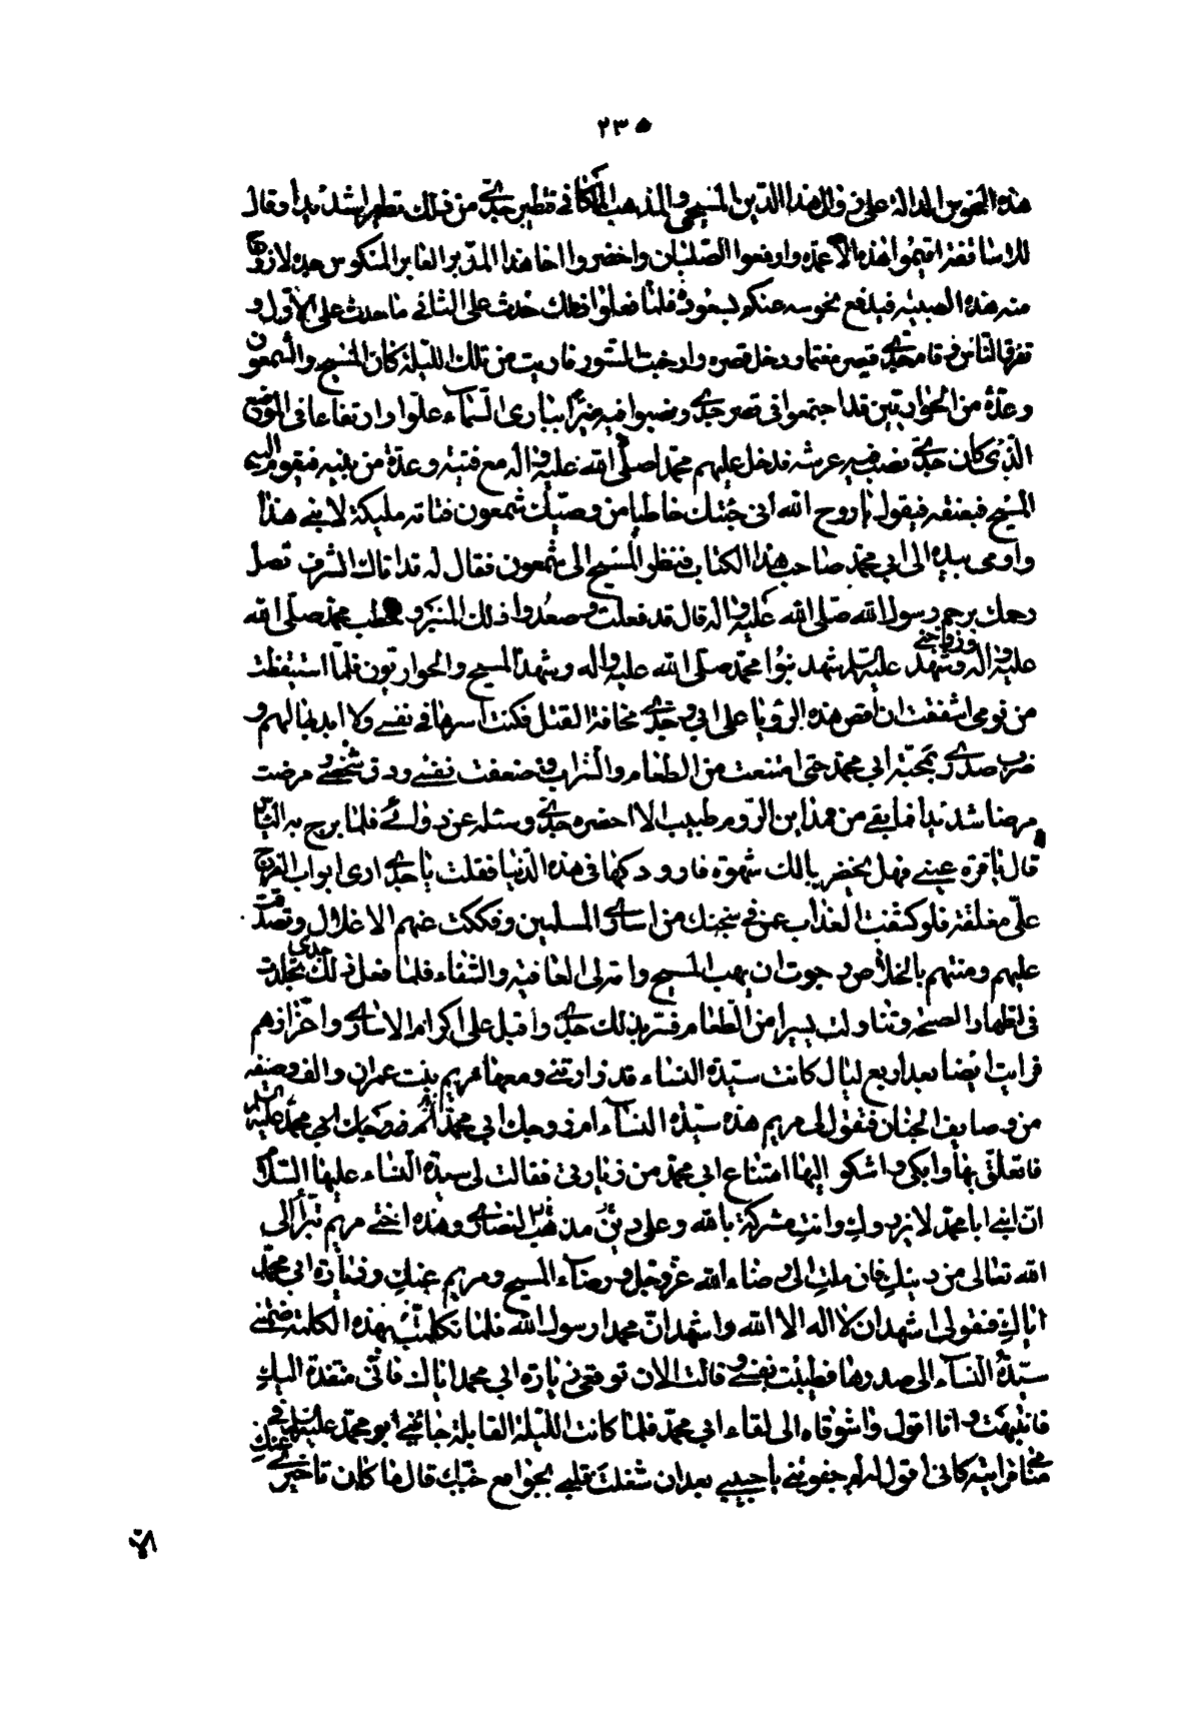 ٢٣٥
هذه النحوس الدالة على زوال هذا الدين المسيحي والمذهب الملكاني فتطير جدي من ذلك تطيرا شديدا وقال
للاساقفة اقيموا هذه الاعمدة وارفعوا الصلبان واحضروا اخا هذا المدبر العاثر المنكوس جده لازوج
منه هذه الصبية فيدفع نحوسه عنكم بسعوده فلما فعلوا ذلك حدث على الثاني ما حدث على الاول و
تفرق الناس وقام جدي قيصر مغتما ودخل قصره وارخيت الستور فاريت من تلك الليلة كان المسيح والشمعون
وعدة من الحواريين قد اجتمعوا في قصر جدي ونصبوا فيه منبرا يباري السماء علوا وارتفاعا في الموضع
الذي كان جدي نصب فيه عرشه فدخل عليهم محمد صلى الله عليه واله مع فتية وعدة من بنيه فيقوم اليه
المسيح فيعتنقه فيقول يا روح الله اني جئتك خاطبا من وصيك شمعون فتاته مليكة لابني هذا
واومى بيده الى ابي محمد صاحب هذا الكتاب فنظر المسيح الى شمعون فقال له قد اتاك الشرف فصل
رحمك برحم رسول الله صلى الله عليه واله قال قد فعلت وصعدوا ذلك المنبر وخطب محمد صلى الله
عليه واله وزوجني وشهد المسيح عليه السلام وشهد بنو محمد صلى الله عليه واله وشهد المسيح والحواريون فلما استيقظت
من نومي اشفقت ان اقص هذه الرؤيا على ابي وجدي مخافة القتل فكنت اسرها في نفسي ولا ابديها لهم و
ضرب صدري بمحبة ابي محمد حتى امتنعت من الطعام والشراب وضعفت نفسي ودق شخصي ومرضت
مرضا شديدا فما بقي من مداين الروم طبيب الا احضره جدي وسئله عن دوائي فلما برح به الياس
قال يا قرة عيني فهل يخطر ببالك شهوة فازودكها في هذه الدنيا فقلت يا جدي ارى ابواب الفرج
علي مغلقة فلو كشفت العذاب عمن في سجنك من اسارى المسلمين وفككت عنهم الاغلال وتصدقت
عليهم ومنيتهم بالخلاص رجوت ان يهب المسيح وامه لي العافية والشفاء فلما فعل ذلك جدي تجلدت
في اظهار الصحة وتناولت يسيرا من الطعام فسر بذلك جدي واقبل على اكرام الاسارى واعزازهم
فرايت ايضا بعد اربع ليال كانت سيدة النساء قد زارتني ومعها مريم بنت عمران والف وصيفة
من وصايف الجنان فتقول لي مريم هذه سيدة النساء ام زوجك ابي محمد عليه السلام
فاتعلق بها وابكي واشكو اليها امتناع ابي محمد من زيارتي فقالت لي سيدة النساء عليها السلام
ان ابني ابا محمد لا يزورك وانت مشركة بالله وعلى دين مذهب النصارى وهذه اختي مريم تبرأ الى
الله تعالى من دينك فان ملت الى رضاء الله عز وجل ورضاء المسيح ومريم عنك وزيارة ابي محمد
اياك فتقولي اشهد ان لا اله الا الله واشهد ان محمدا رسول الله فلما تكلمت بهذه الكلمة ضمتني
سيدة النساء الى صدرها فطيبت نفسي وقالت الان توقعي زيارة ابي محمد اياك فاني منفذة اليك
فانتبهت وانا اقول واشوقاه الى لقاء ابي محمد فلما كانت الليلة القابلة جائني ابو محمد عليه السلام في
منامي فرايته كاني اقول له لم جفوتني يا حبيبي بعد ان شغلت قلبي بجوامع حبك قال ما كان تاخيري عنك
الا